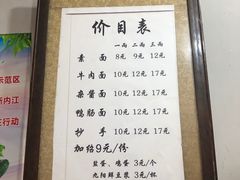 价目表
一两 二两 三两
素面 8元 9元 12元
牛肉面 10元 12元 17元
杂酱面 10元 12元 17元
鸭肠面 10元 12元 17元
抄手 10元 12元 17元
加绍9元/份
盐蛋、鸡蛋 3元/个
九阳鲜豆浆 3元/杯
示范区
新内江
在行动